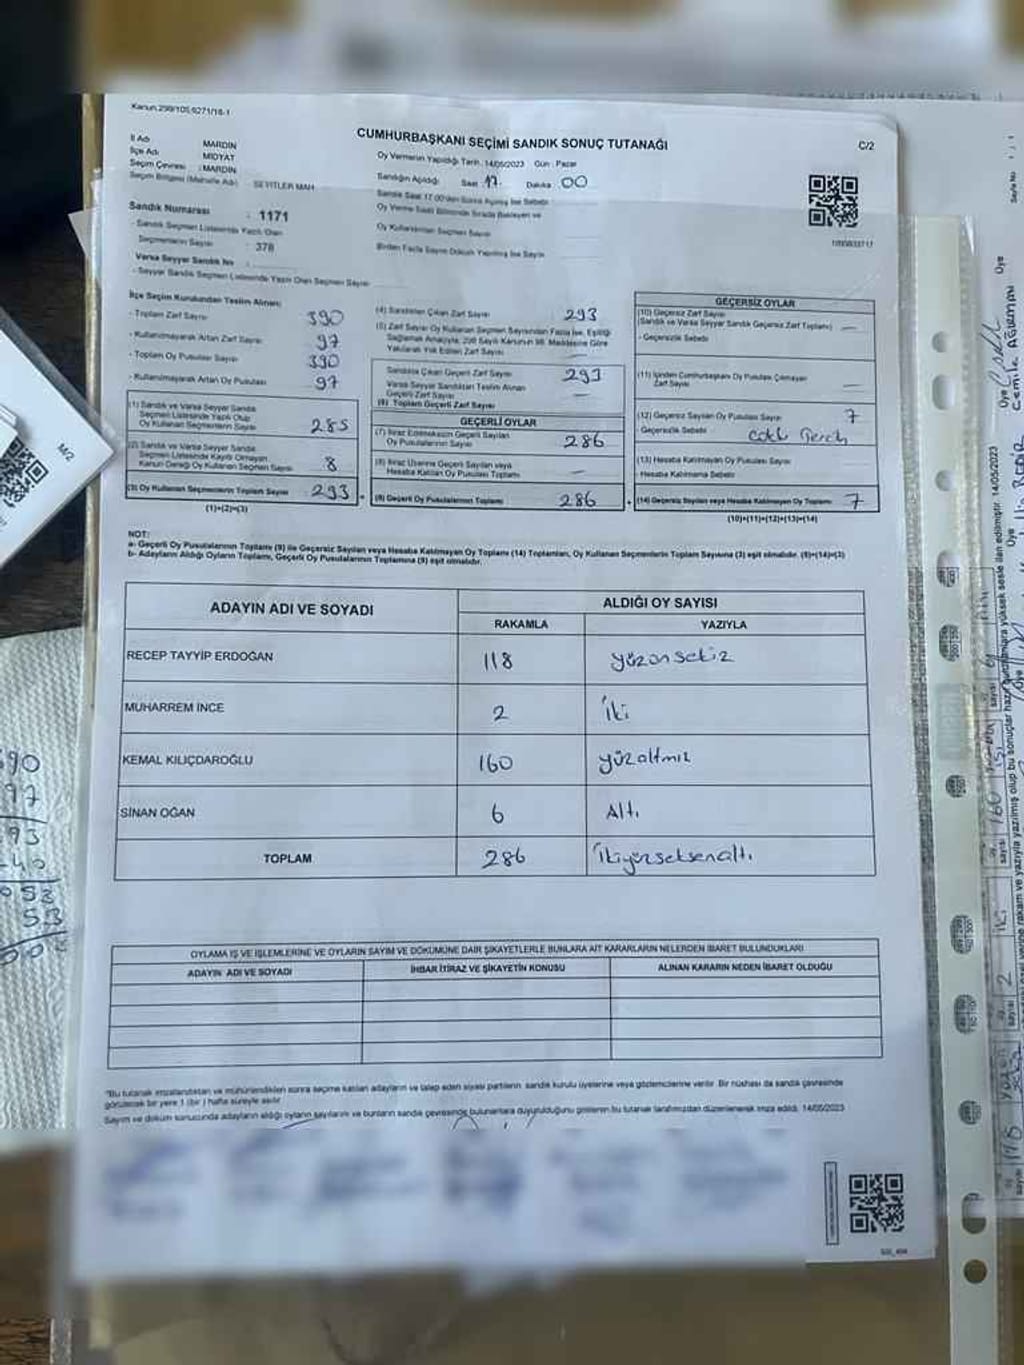 Kanun.298/105,6271/18-1
CUMHURBAŞKANI SEÇİMİ SANDIK SONUÇ TUTANAĞI
C/2
İl Adı MARDİN
İlçe Adı MİDYAT
Seçim Çevresi : MARDİN
Seçim Bölgesi (Mahalle Adı) SEYİTLER MAH
Oy Vermenin Yapıldığı Tarih : 14/05/2023 Gün : Pazar
Sandığın Açıldığı Saat 17. Dakika 00
Sandık Saat 17.00'den Sonra Açılmış İse Sebebi
Oy Verme Saati Bitiminde Sırada Bekleyen ve
Oy Kullandırılan Seçmen Sayısı
Birden Fazla Sayım Döküm Yapılmış İse Sayısı
Sandık Numarası : 1171
- Sandık Seçmen Listesinde Yazılı Olan
Seçmenlerin Sayısı : 378
Varsa Seyyar Sandık No :
- Seyyar Sandık Seçmen Listesinde Yazılı Olan Seçmen Sayısı
İlçe Seçim Kurulundan Teslim Alınan:
- Toplam Zarf Sayısı 390
- Kullanılmayarak Artan Zarf Sayısı 97
- Toplam Oy Pusulası Sayısı 390
- Kullanılmayarak Artan Oy Pusulası 97
(1) Sandık ve Varsa Seyyar Sandık
Seçmen Listesinde Yazılı Olup
Oy Kullanan Seçmenlerin Sayısı 285
(2) Sandık ve Varsa Seyyar Sandık
Seçmen Listesinde Kayıtlı Olmayan
Kanun Gereği Oy Kullanan Seçmen Sayısı 8
(3) Oy Kullanan Seçmenlerin Toplam Sayısı 293
(1)+(2)=(3)
(4) Sandıktan Çıkan Zarf Sayısı 293
(5) Zarf Sayısı Oy Kullanan Seçmen Sayısından Fazla İse, Eşitliği
Sağlamak Amacıyla, 298 Sayılı Kanunun 98. Maddesine Göre
Yakılarak Yok Edilen Zarf Sayısı —
Sandıkta Çıkan Geçerli Zarf Sayısı 293
Varsa Seyyar Sandıktan Teslim Alınan
Geçerli Zarf Sayısı —
(6) Toplam Geçerli Zarf Sayısı
GEÇERLİ OYLAR
(7) İtiraz Edilmeksizin Geçerli Sayılan
Oy Pusulalarının Sayısı 286
(8) İtiraz Üzerine Geçerli Sayılan veya
Hesaba Katılan Oy Pusulası Toplamı —
(9) Geçerli Oy Pusulalarının Toplamı 286
GEÇERSİZ OYLAR
(10) Geçersiz Zarf Sayısı
(Sandık ve Varsa Seyyar Sandık Geçersiz Zarf Toplamı) —
- Geçersizlik Sebebi
(11) İçinden Cumhurbaşkanı Oy Pusulası Çıkmayan
Zarf Sayısı —
(12) Geçersiz Sayılan Oy Pusulası Sayısı 7
- Geçersizlik Sebebi
(13) Hesaba Katılmayan Oy Pusulası Sayısı
Hesaba Katılmama Sebebi
(14) Geçersiz Sayılan veya Hesaba Katılmayan Oy Toplamı 7
(10)+(11)+(12)+(13)=(14)
NOT:
a- Geçerli Oy Pusulalarının Toplamı (9) ile Geçersiz Sayılan veya Hesaba Katılmayan Oy Toplamı (14) Toplamları, Oy Kullanan Seçmenlerin Toplam Sayısına (3) eşit olmalıdır. (9)+(14)=(3)
b- Adayların Aldığı Oyların Toplamı, Geçerli Oy Pusulalarının Toplamına (9) eşit olmalıdır.
ADAYIN ADI VE SOYADI ALDIĞI OY SAYISI
RAKAMLA YAZIYLA
RECEP TAYYİP ERDOĞAN 118 yüzonsekiz
MUHARREM İNCE 2 iki
KEMAL KILIÇDAROĞLU 160 yüzaltmış
SİNAN OĞAN 6 Altı
TOPLAM 286 ikiyüzseksenaltı
OYLAMA İŞ VE İŞLEMLERİNE VE OYLARIN SAYIM VE DÖKÜMÜNE DAİR ŞİKAYETLERLE BUNLARA AİT KARARLARIN NELERDEN İBARET BULUNDUKLARI
ADAYIN ADI VE SOYADI İHBAR İTİRAZ VE ŞİKAYETİN KONUSU ALINAN KARARIN NEDEN İBARET OLDUĞU
*Bu tutanak imzalandıktan ve mühürlendikten sonra seçime katılan adayların ve talep eden siyasi partilerin sandık kurulu üyelerine veya gözlemcilerine verilir. Bir nüshası da sandık çevresinde
görülecek bir yere 1 (bir) hafta süreyle asılır
Sayım ve döküm sonucunda adayların aldığı oyların sayılarını ve bunların sandık çevresinde bulunanlara duyurulduğunu gösteren bu tutanak tarafımızdan düzenlenerek imza edildi. 14/05/2023
M/2